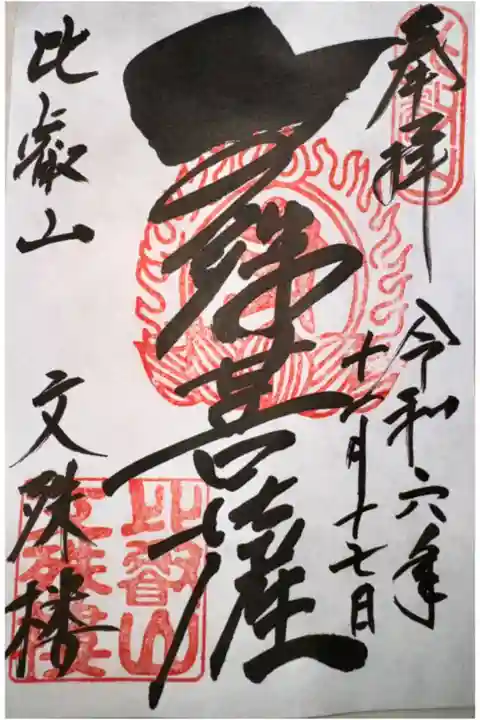 奉拝
令和六年
十二月十七日
文殊菩薩
比叡山 文殊楼
比叡山
文殊楼